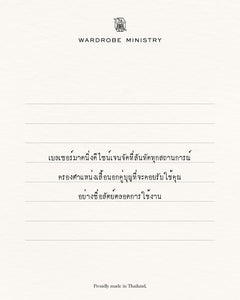 WARDROBE MINISTRY
เบลเซอร์มาดนิ่งดีไซน์เจนจัดที่สันทัดทุกสถานการณ์
ครองตำแหน่งเสื้อนอกคู่บุญที่จะคอยรับใช้คุณ
อย่างซื่อสัตย์ตลอดการใช้งาน
Proudly made in Thailand.